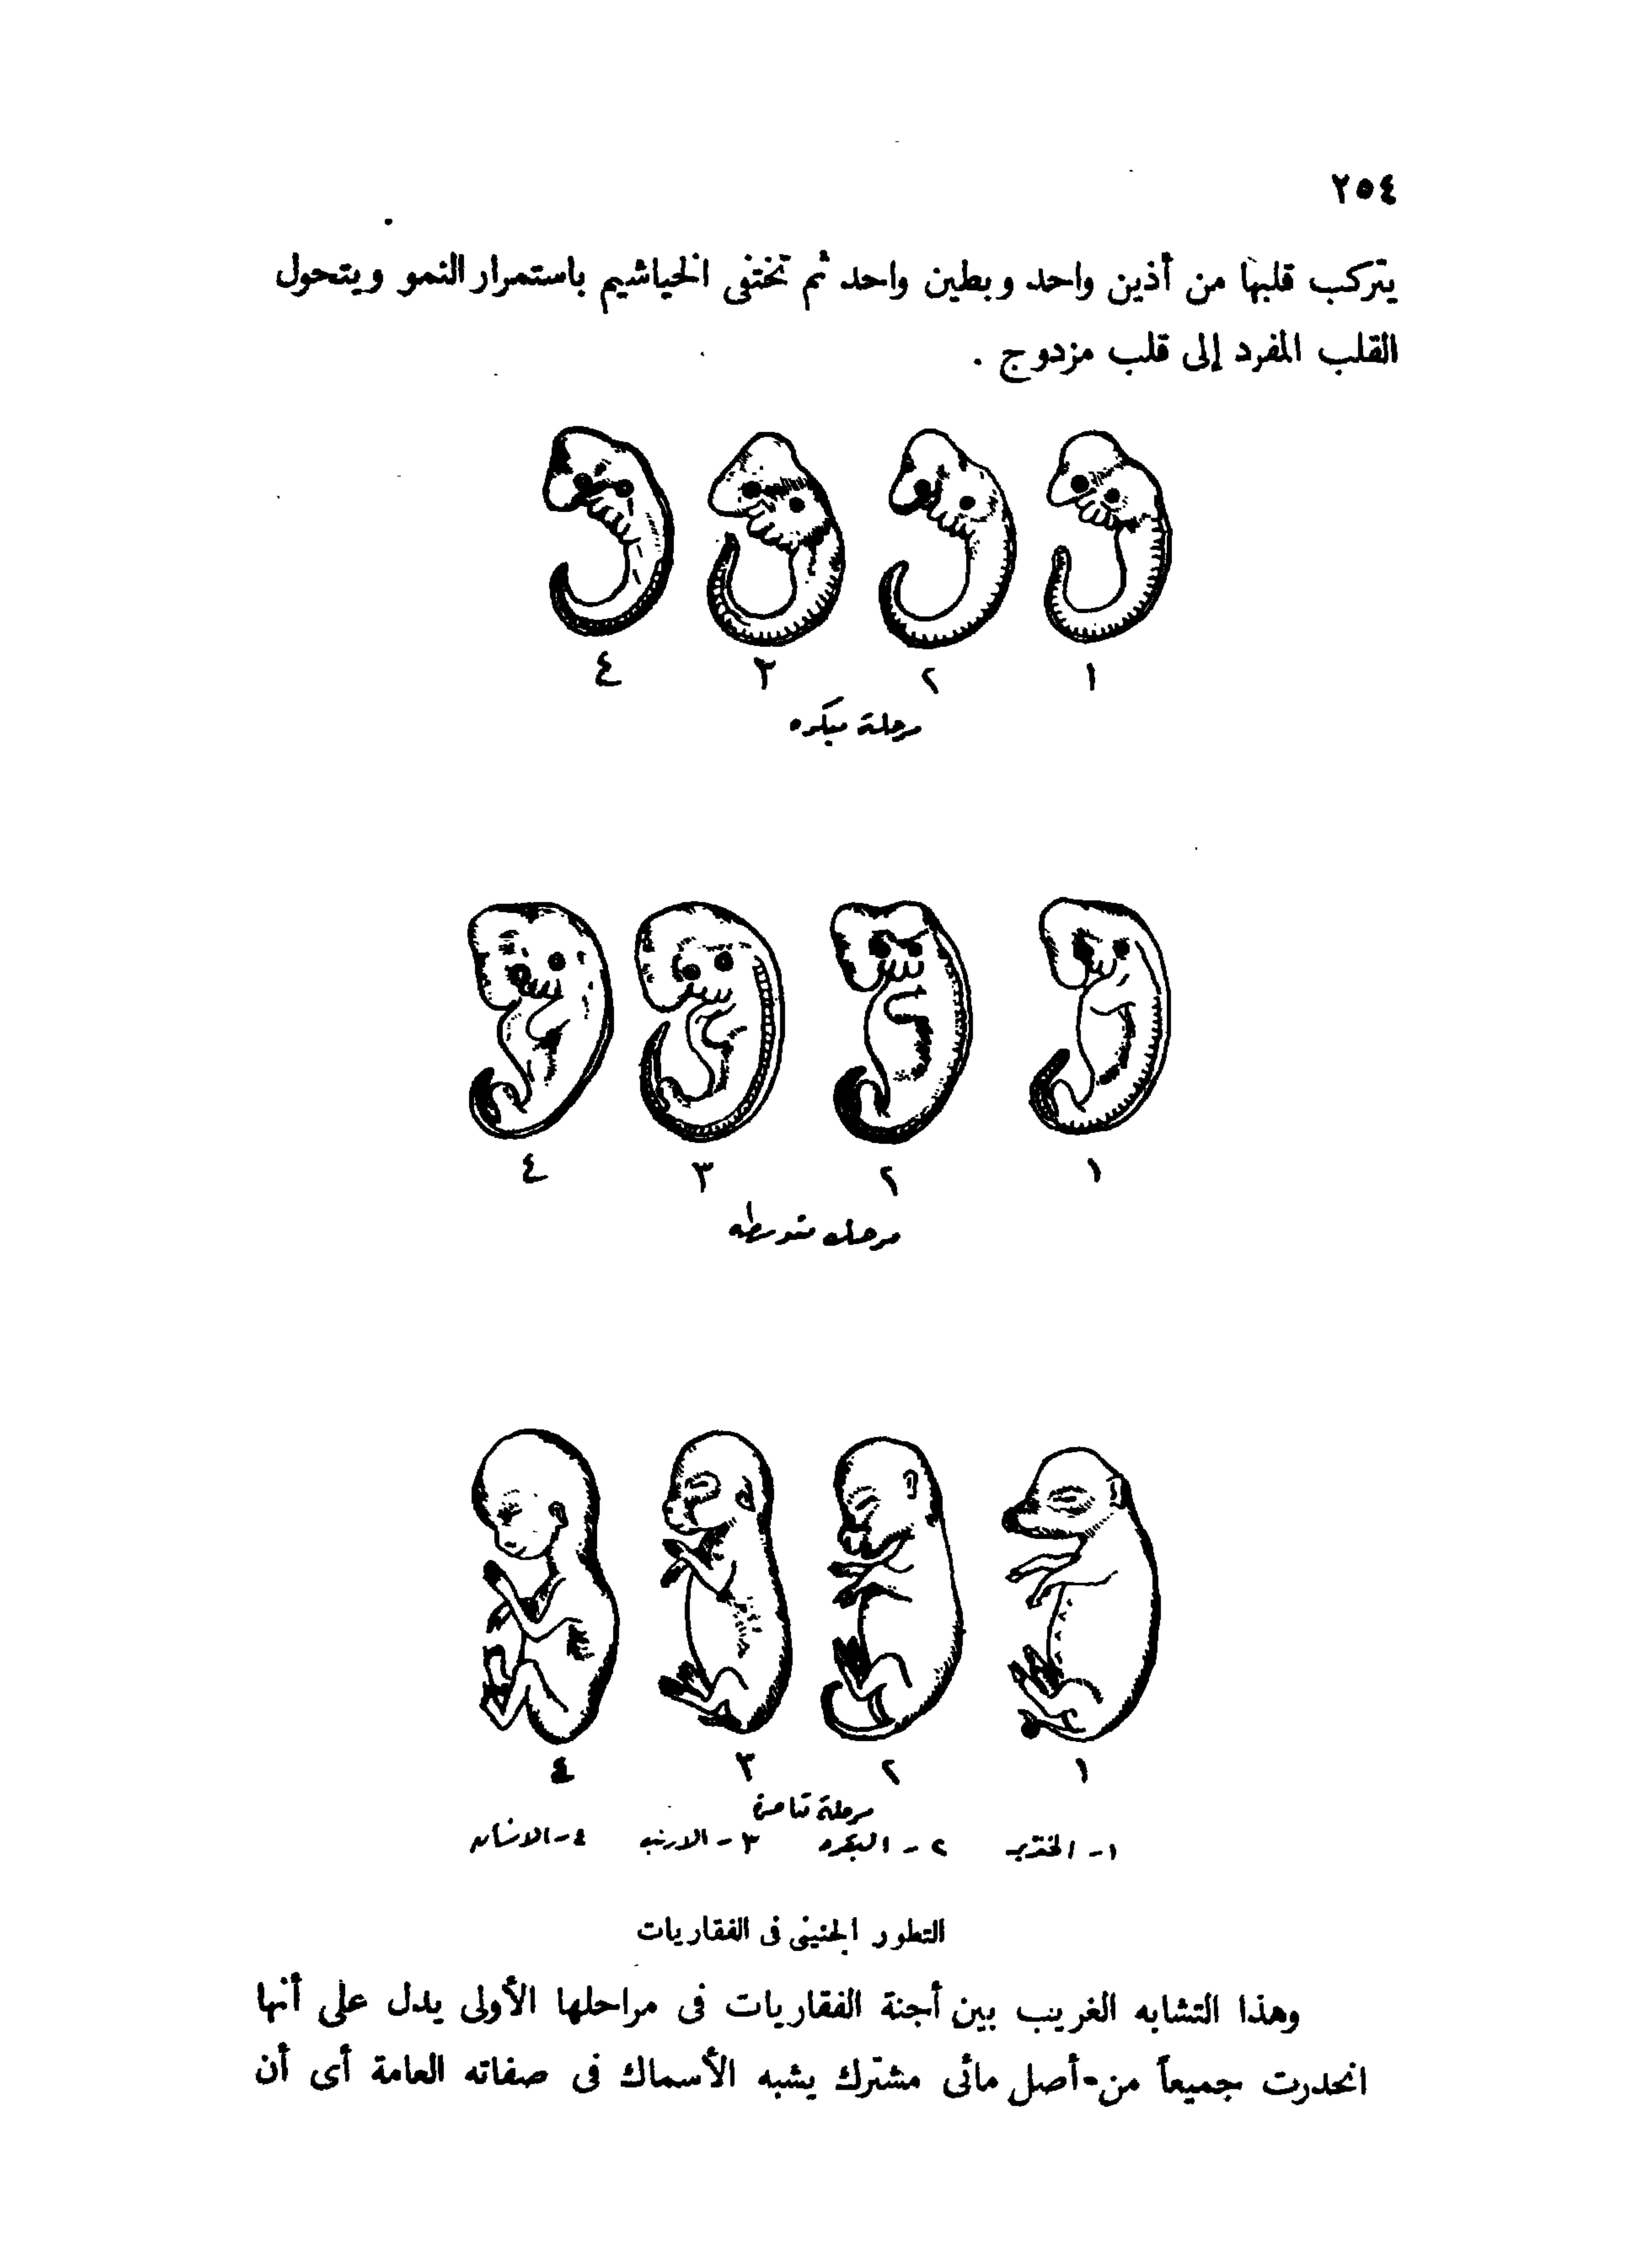 ٢٥٤
يتركب قلبها من أذين واحد وبطين واحد ثم تختفى الخياشيم باستمرار النمو ويتحول
القلب المفرد إلى قلب مزدوج .
١ ٢ ٣ ٤
مرحلة مبكره
١ ٢ ٣ ٤
مرحله متوسطه
١ ٢ ٣ ٤
مرحلة
١ - الخنزير ٢ - البقره ٣ - الارنب ٤ - الانسان
التطور الجنينى فى الفقاريات
وهذا التشابه الغريب بين أجنة الفقاريات فى مراحلها الأولى يدل على أنها
انحدرت جميعاً من أصل مائى مشترك يشبه الأسماك فى صفاته العامة أى أن